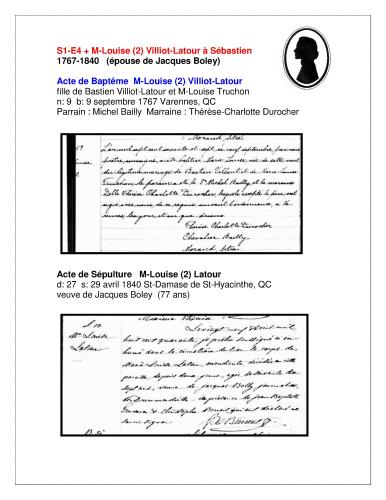 S1-E4 + M-Louise (2) Villiot-Latour à Sébastien
1767-1840 (épouse de Jacques Boley)
Acte de Baptême M-Louise (2) Villiot-Latour
fille de Bastien Villiot-Latour et M-Louise Truchon
n: 9 b: 9 septembre 1767 Varennes, QC
Parrain : Michel Bailly Marraine : Thérèse-Charlotte Durocher
Morand, Ptre
L'an mil sept cent soixante et sept le neuf septembre, par nous
prêtre, soussigné, a été baptisé Marie Louise, née de cette nuit
du légitime mariage de Bastien Villiot et de Marie Louise
Truchon. Le parrain a été le Sr Michel Bailly et la marraine
Delle Thérèse Charlotte Durocher, lesquels
Thérèse Charlotte Durocher
Chevalier Bailly
Morand, Ptre
Acte de Sépulture M-Louise (2) Latour
d: 27 s: 29 avril 1840 St-Damase de St-Hyacinthe, QC
veuve de Jacques Boley (77 ans)
S 10
Mie Louise
Latour
Le vingt neuf Avril mil
huit cent quarante, je prêtre soussigné ai in-
humé dans le cimetière de ce lieu le corps de
Marie Louise Latour, décédée en cette
paroisse depuis deux jours, agée de soixante dix
sept ans, veuve de Jacques Bolly, journalier,
de Drummondville. En présence de Jean Baptiste
et Christophe qui ont déclaré ne
savoir signer.